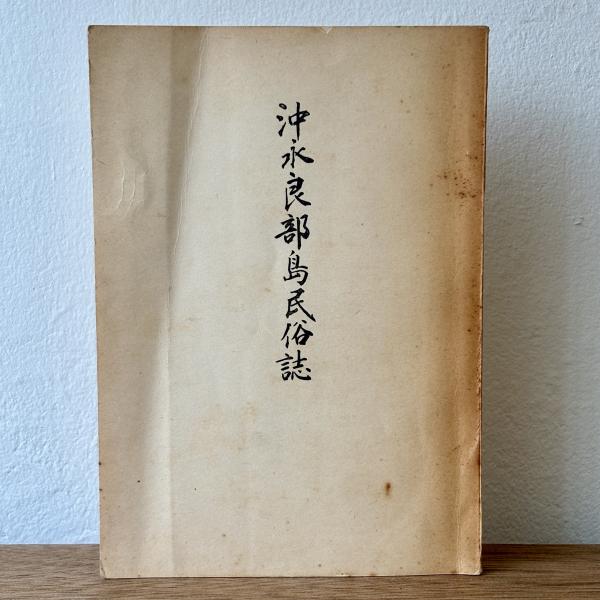 沖永良部島民俗誌